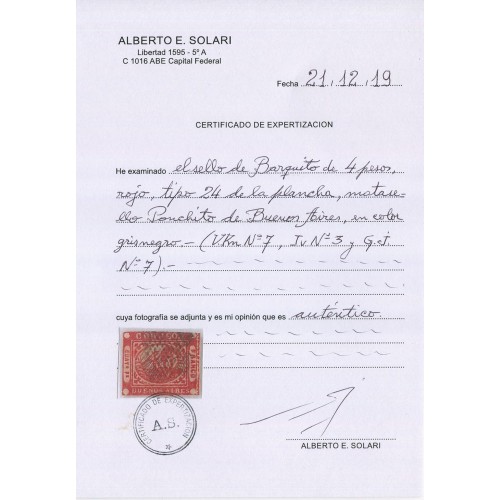 ALBERTO E. SOLARI
Libertad 1595 - 5º A
C 1016 ABE Capital Federal
Fecha 21/12/19
CERTIFICADO DE EXPERTIZACION
He examinado el sello de Barquito de 4 pesos,
rojo, tipo 24 de la plancha, matase-
llo Ponchito de Buenos Aires, en color
gris negro - (VKn Nº 7, Iv Nº 3 y G.J.
Nº 7).-
cuya fotografía se adjunta y es mi opinión que es auténtico.
CORREOS
BUENOS AIRES
CERTIFICADO DE EXPERTIZACION
A.S.
ALBERTO E. SOLARI